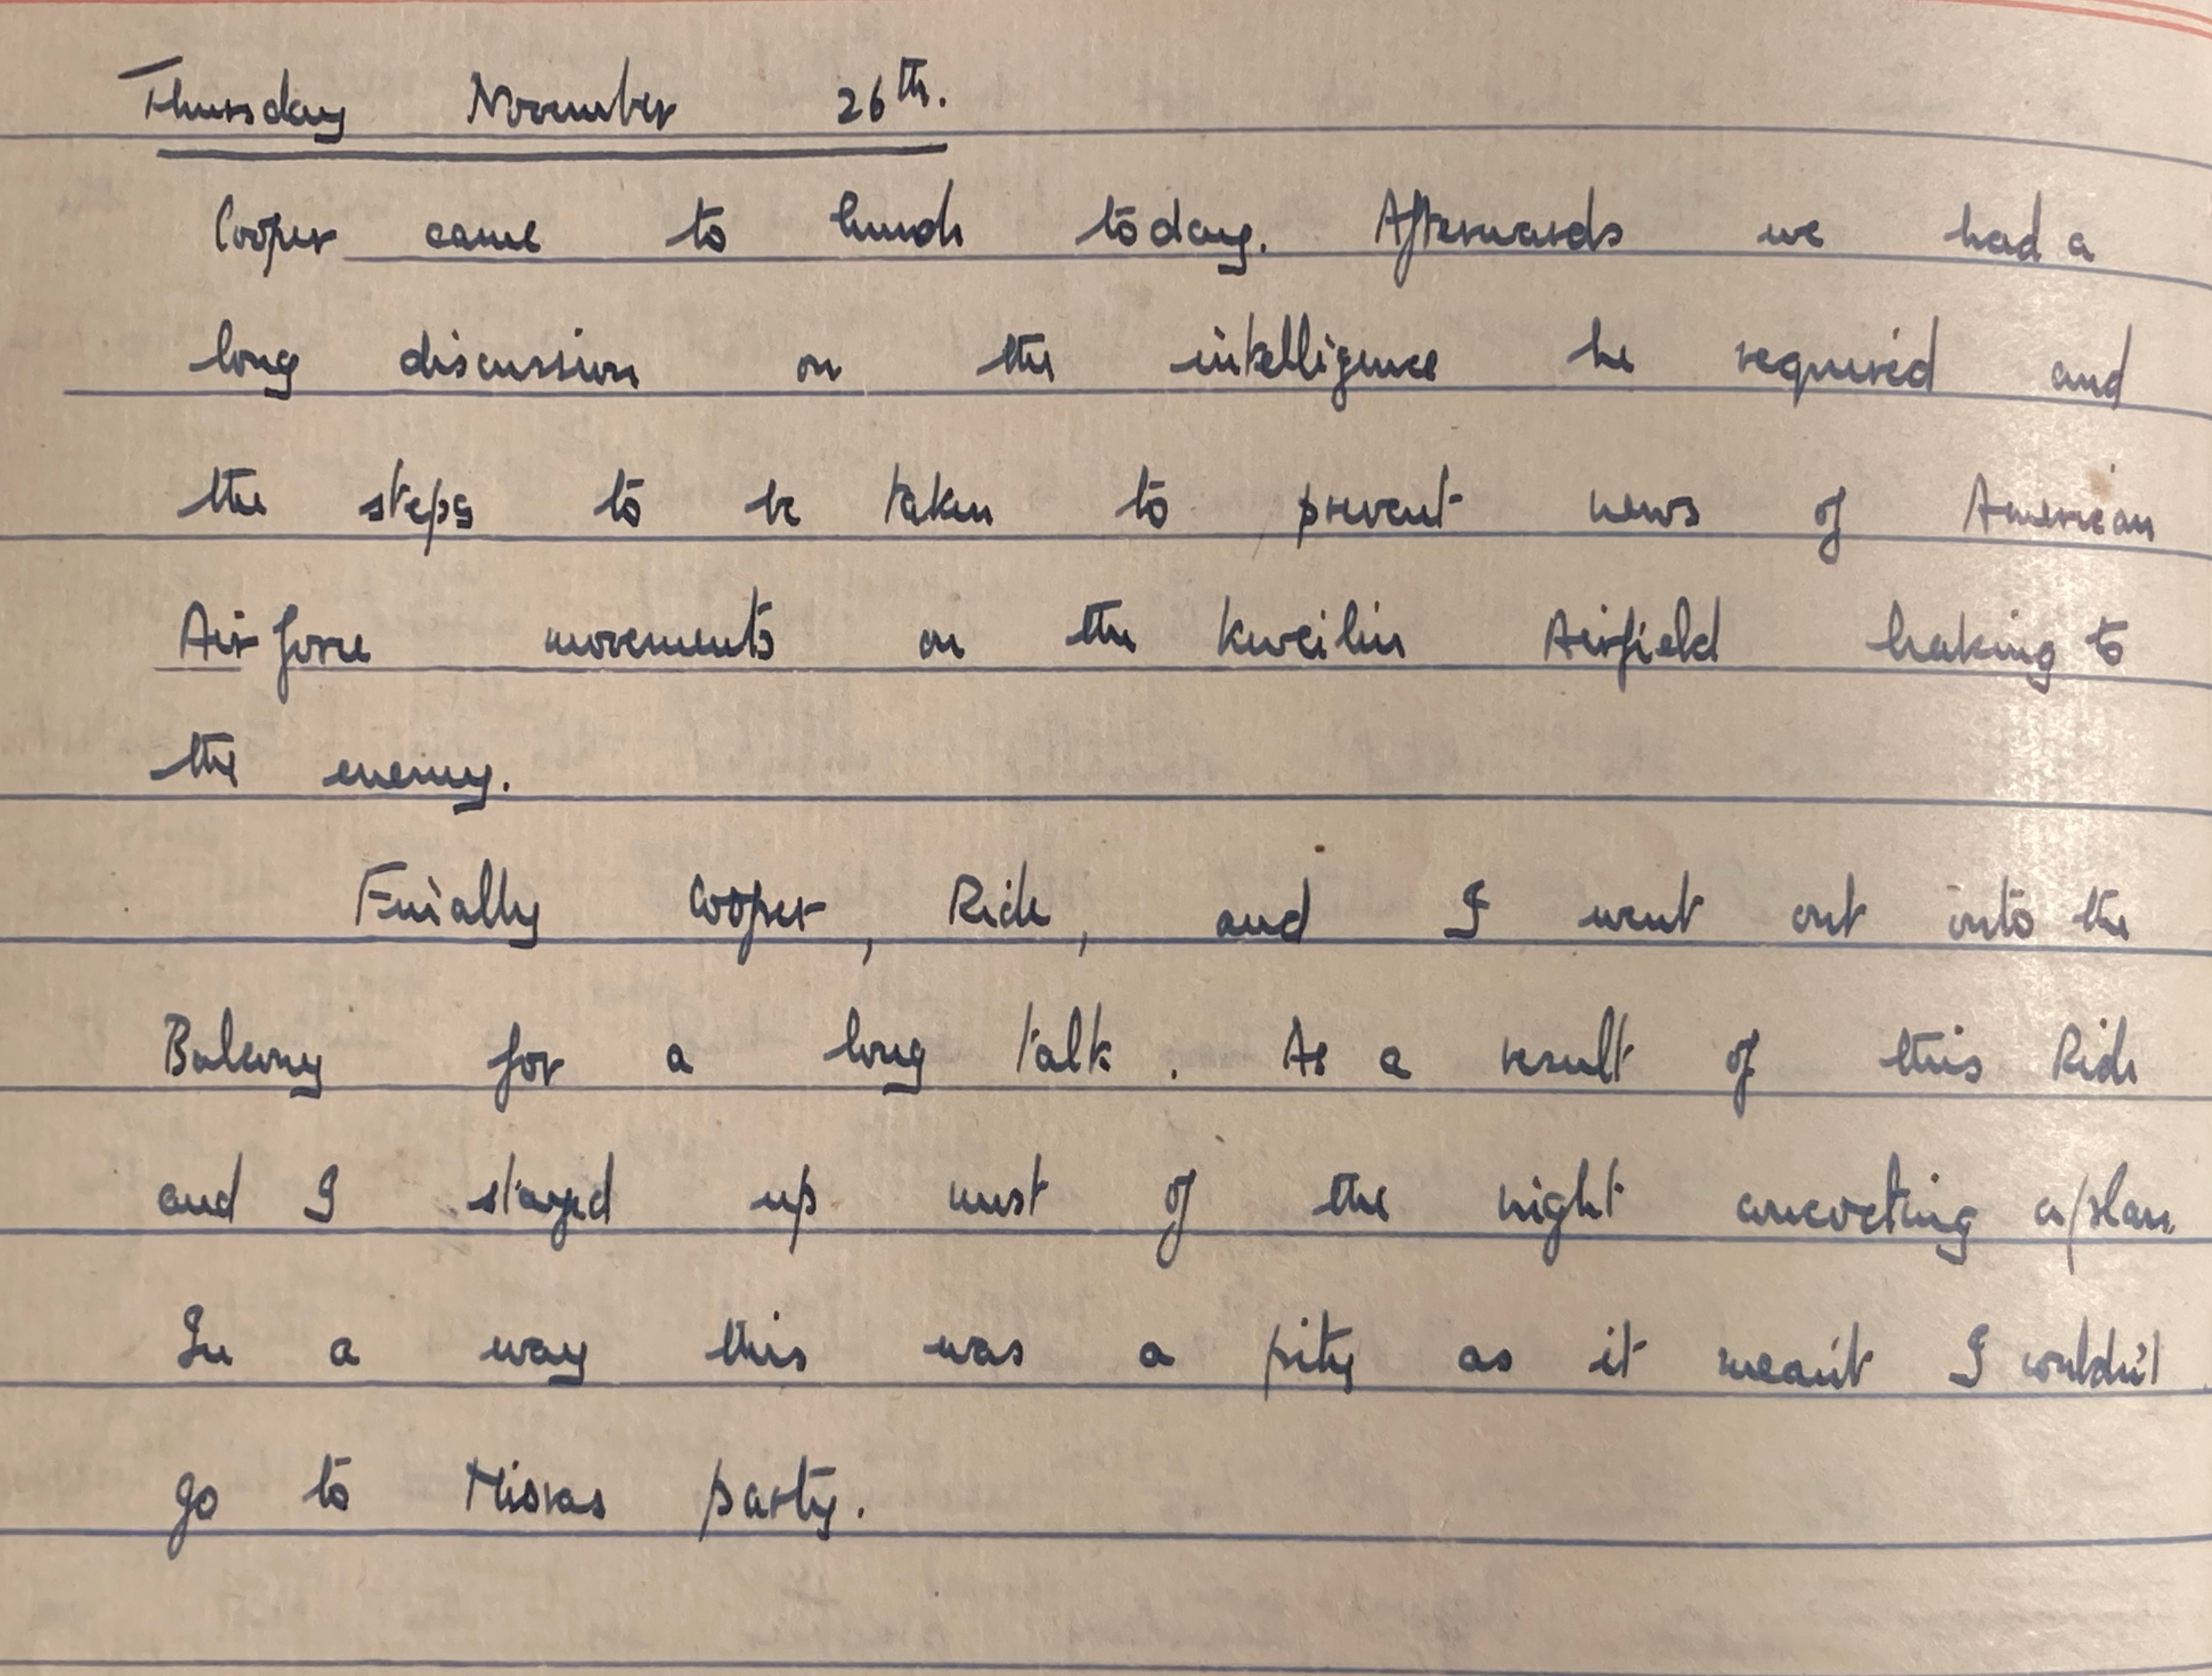 Thursday November 26th.
Cooper came to lunch today. Afterwards we had a
long discussion on the intelligence he required and
the steps to be taken to prevent news of American
Air force movements on the Kweilin Airfield leaking to
the enemy.
Finally Cooper, Ride, and I went out into the
Balcony for a long talk. As a result of this Ride
and I stayed up most of the night concocting a plan
In a way this was a pity as it meant I couldn't
go to party.